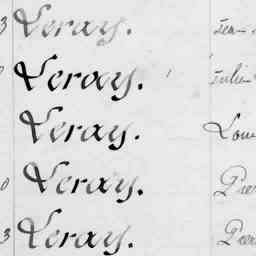 3 Leray. Jea
Leray. Juli
Leray. Lou
0 Leray. Pier
3 Leray. Pier